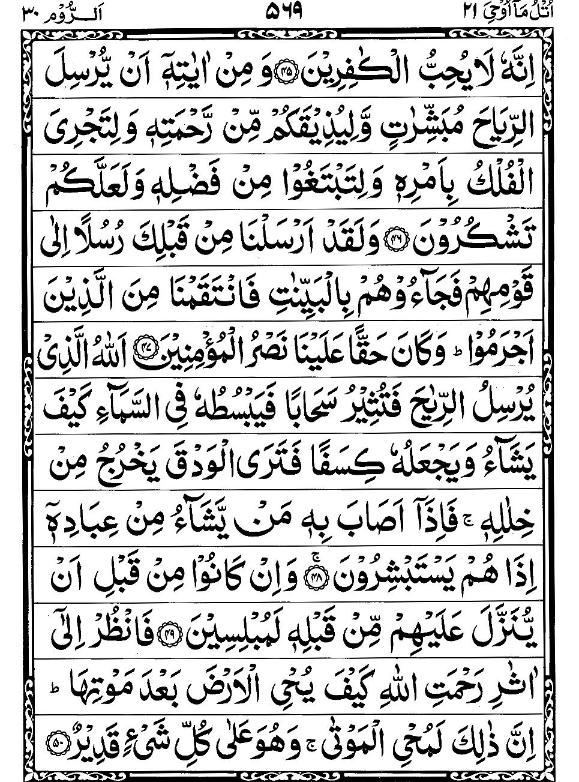 اُتْلُ مَاۤ اُوْحِیَ ۲۱ ۵۶۹ اَلرُّوْم ۳۰
اِنَّهٗ لَا یُحِبُّ الْكٰفِرِیْنَ ﴿۴۵﴾ وَ مِنْ اٰیٰتِهٖۤ اَنْ یُّرْسِلَ
الرِّیَاحَ مُبَشِّرٰتٍ وَّلِیُذِیْقَكُمْ مِّنْ رَّحْمَتِهٖ وَلِتَجْرِیَ
الْفُلْكُ بِاَمْرِهٖ وَلِتَبْتَغُوْا مِنْ فَضْلِهٖ وَلَعَلَّكُمْ
تَشْكُرُوْنَ ﴿۴۶﴾ وَلَقَدْ اَرْسَلْنَا مِنْ قَبْلِكَ رُسُلًا اِلٰی
قَوْمِهِمْ فَجَآءُوْهُمْ بِالْبَیِّنٰتِ فَانْتَقَمْنَا مِنَ الَّذِیْنَ
اَجْرَمُوْا ؕ وَكَانَ حَقًّا عَلَیْنَا نَصْرُ الْمُؤْمِنِیْنَ ﴿۴۷﴾ اَللّٰهُ الَّذِیْ
یُرْسِلُ الرِّیٰحَ فَتُثِیْرُ سَحَابًا فَیَبْسُطُهٗ فِی السَّمَآءِ كَیْفَ
یَشَآءُ وَیَجْعَلُهٗ كِسَفًا فَتَرَی الْوَدْقَ یَخْرُجُ مِنْ
خِلٰلِهٖ ۚ فَاِذَاۤ اَصَابَ بِهٖ مَنْ یَّشَآءُ مِنْ عِبَادِهٖۤ
اِذَا هُمْ یَسْتَبْشِرُوْنَ ﴿۴۸﴾ۚ وَاِنْ كَانُوْا مِنْ قَبْلِ اَنْ
یُّنَزَّلَ عَلَیْهِمْ مِّنْ قَبْلِهٖ لَمُبْلِسِیْنَ ﴿۴۹﴾ فَانْظُرْ اِلٰۤی
اٰثٰرِ رَحْمَتِ اللّٰهِ كَیْفَ یُحْیِ الْاَرْضَ بَعْدَ مَوْتِهَا ؕ
اِنَّ ذٰلِكَ لَمُحْیِ الْمَوْتٰی ۚ وَهُوَ عَلٰی كُلِّ شَیْءٍ قَدِیْرٌ ﴿۵۰﴾